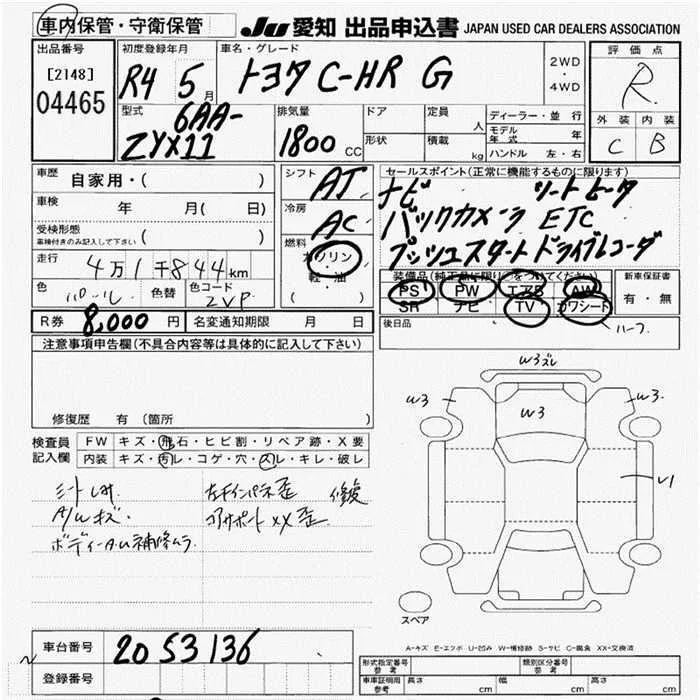 車内保管・守衛保管 JU 愛知 出品申込書 JAPAN USED CAR DEALERS ASSOCIATION
出品番号 初度登録年月 車名・グレード 評価点
[2148] R4 5月 トヨタ C-HR G 2WD・4WD R
04465
型式 排気量 ドア 定員 人 ディーラー・並行 外装 内装
6AA- モデル年式 年
ZYX11 1800 CC 形状 積載 kg ハンドル 左・右 C B
車歴 自家用・( ) シフト AT セールスポイント(正常に機能するものに限ります)
車検 年 月( 日) 冷房 AC ナビ シートヒータ
受検形態 ( ) バックカメラ ETC
車検付きのみ記入して下さい 燃料 ガソリン プッシュスタート ドライブレコーダ
走行 4万1千844km 軽・油 装備品(純正品に限り○をつけてください) 新車保証書
色 パール 色替 色コード 2VP PS PW エアB AW 有・無
SR ナビ TV カワシート
R券 8,000円 名変通知期限 月 日 後日品 ハーフ
注意事項申告欄(不具合内容等は具体的に記入して下さい)
修復歴 有 (箇所 )
W3ズレ
W3 W3 W3
検査員記入欄 FW キズ・飛石・ヒビ割・リペア跡・X要
内装 キズ・汚レ・コゲ・穴・スレ・キレ・破レ
U1
左インパネ歪 修復
A/Wキズ. コアサポートXX歪
ボディーA.U補修ムラ
スペア
A-キズ E-エクボ U-凹み W-補修跡 S-サビ C-腐食 XX-交換済
車台番号 2053136
登録番号
形式指定番号 参考 類別区分番号 参考
車車証明用 参考 長さ cm 幅 cm 高さ cm